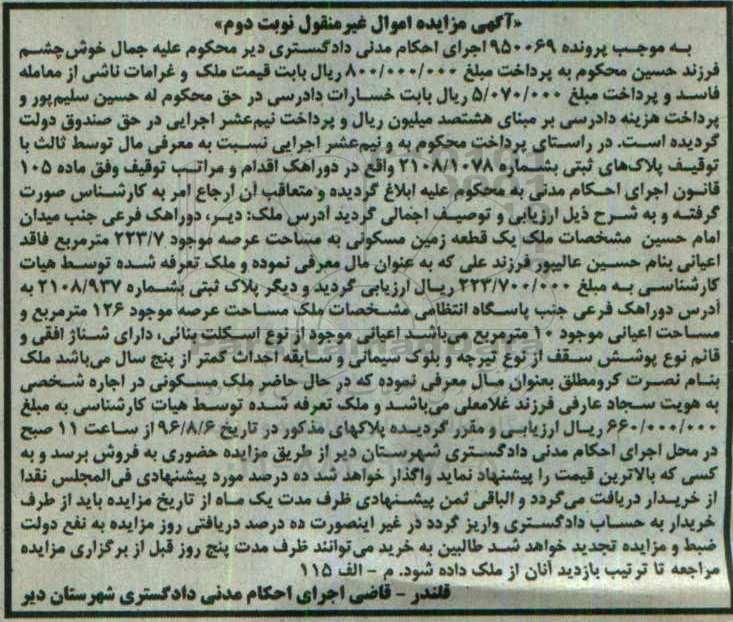 «آگهی مزایده اموال غیرمنقول نوبت دوم»
به موجب پرونده ۹۵۰۰۶۹ اجرای احکام مدنی دادگستری دیر محکوم علیه جمال خوش‌چشم
فرزند حسین محکوم به پرداخت مبلغ ۸۰۰/۰۰۰/۰۰۰ ریال بابت قیمت ملک و غرامات ناشی از معامله
فاسد و پرداخت مبلغ ۵/۰۷۰/۰۰۰ ریال بابت خسارات دادرسی در حق محکوم له حسین سلیم‌پور و
پرداخت هزینه دادرسی بر مبنای هشتصد میلیون ریال و پرداخت نیم‌عشر اجرایی در حق صندوق دولت
گردیده است. در راستای پرداخت محکوم به و نیم‌عشر اجرایی نسبت به معرفی مال توسط ثالث با
توقیف پلاک‌های ثبتی بشماره ۲۱۰۸/۱۰۷۸ واقع در دوراهک اقدام و مراتب توقیف وفق ماده ۱۰۵
قانون اجرای احکام مدنی به محکوم علیه ابلاغ گردیده و متعاقب آن ارجاع امر به کارشناس صورت
گرفته و به شرح ذیل ارزیابی و توصیف اجمالی گردید آدرس ملک: دیر، دوراهک فرعی جنب میدان
امام حسین مشخصات ملک یک قطعه زمین مسکونی به مساحت عرصه موجود ۲۲۳/۷ مترمربع فاقد
اعیانی بنام حسین عالیپور فرزند علی که به عنوان مال معرفی نموده و ملک تعرفه شده توسط هیات
کارشناسی به مبلغ ۲۲۳/۷۰۰/۰۰۰ ریال ارزیابی گردید و دیگر پلاک ثبتی بشماره ۲۱۰۸/۹۳۷ به
آدرس دوراهک فرعی جنب پاسگاه انتظامی مشخصات ملک مساحت عرصه موجود ۱۲۶ مترمربع و
مساحت اعیانی موجود ۱۰ مترمربع می‌باشد اعیانی موجود از نوع اسکلت بنائی، دارای شناژ افقی و
قائم نوع پوشش سقف از نوع تیرچه و بلوک سیمانی و با سابقه احداث کمتر از پنج سال می‌باشد ملک
بنام نصرت کرومطلق بعنوان مال معرفی نموده که در حال حاضر ملک مسکونی در اجاره شخصی
به هویت سجاد عارفی فرزند غلامعلی می‌باشد و ملک تعرفه شده توسط هیات کارشناسی به مبلغ
۶۶۰/۰۰۰/۰۰۰ ریال ارزیابی و مقرر گردیده پلاکهای مذکور در تاریخ ۹۶/۸/۶ از ساعت ۱۱ صبح
در محل اجرای احکام مدنی دادگستری شهرستان دیر از طریق مزایده حضوری به فروش برسد و به
کسی که بالاترین قیمت را پیشنهاد نماید واگذار خواهد شد ده درصد مورد پیشنهادی فی‌المجلس نقدا
از خریدار دریافت می‌گردد و الباقی ثمن پیشنهادی ظرف مدت یک ماه از تاریخ مزایده باید از طرف
خریدار به حساب دادگستری واریز گردد در غیر اینصورت ده درصد دریافتی روز مزایده به نفع دولت
ضبط و مزایده تجدید خواهد شد طالبین به خرید می‌توانند ظرف مدت پنج روز قبل از برگزاری مزایده
مراجعه تا ترتیب بازدید آنان از ملک داده شود. م - الف ۱۱۵
قلندر - قاضی اجرای احکام مدنی دادگستری شهرستان دیر